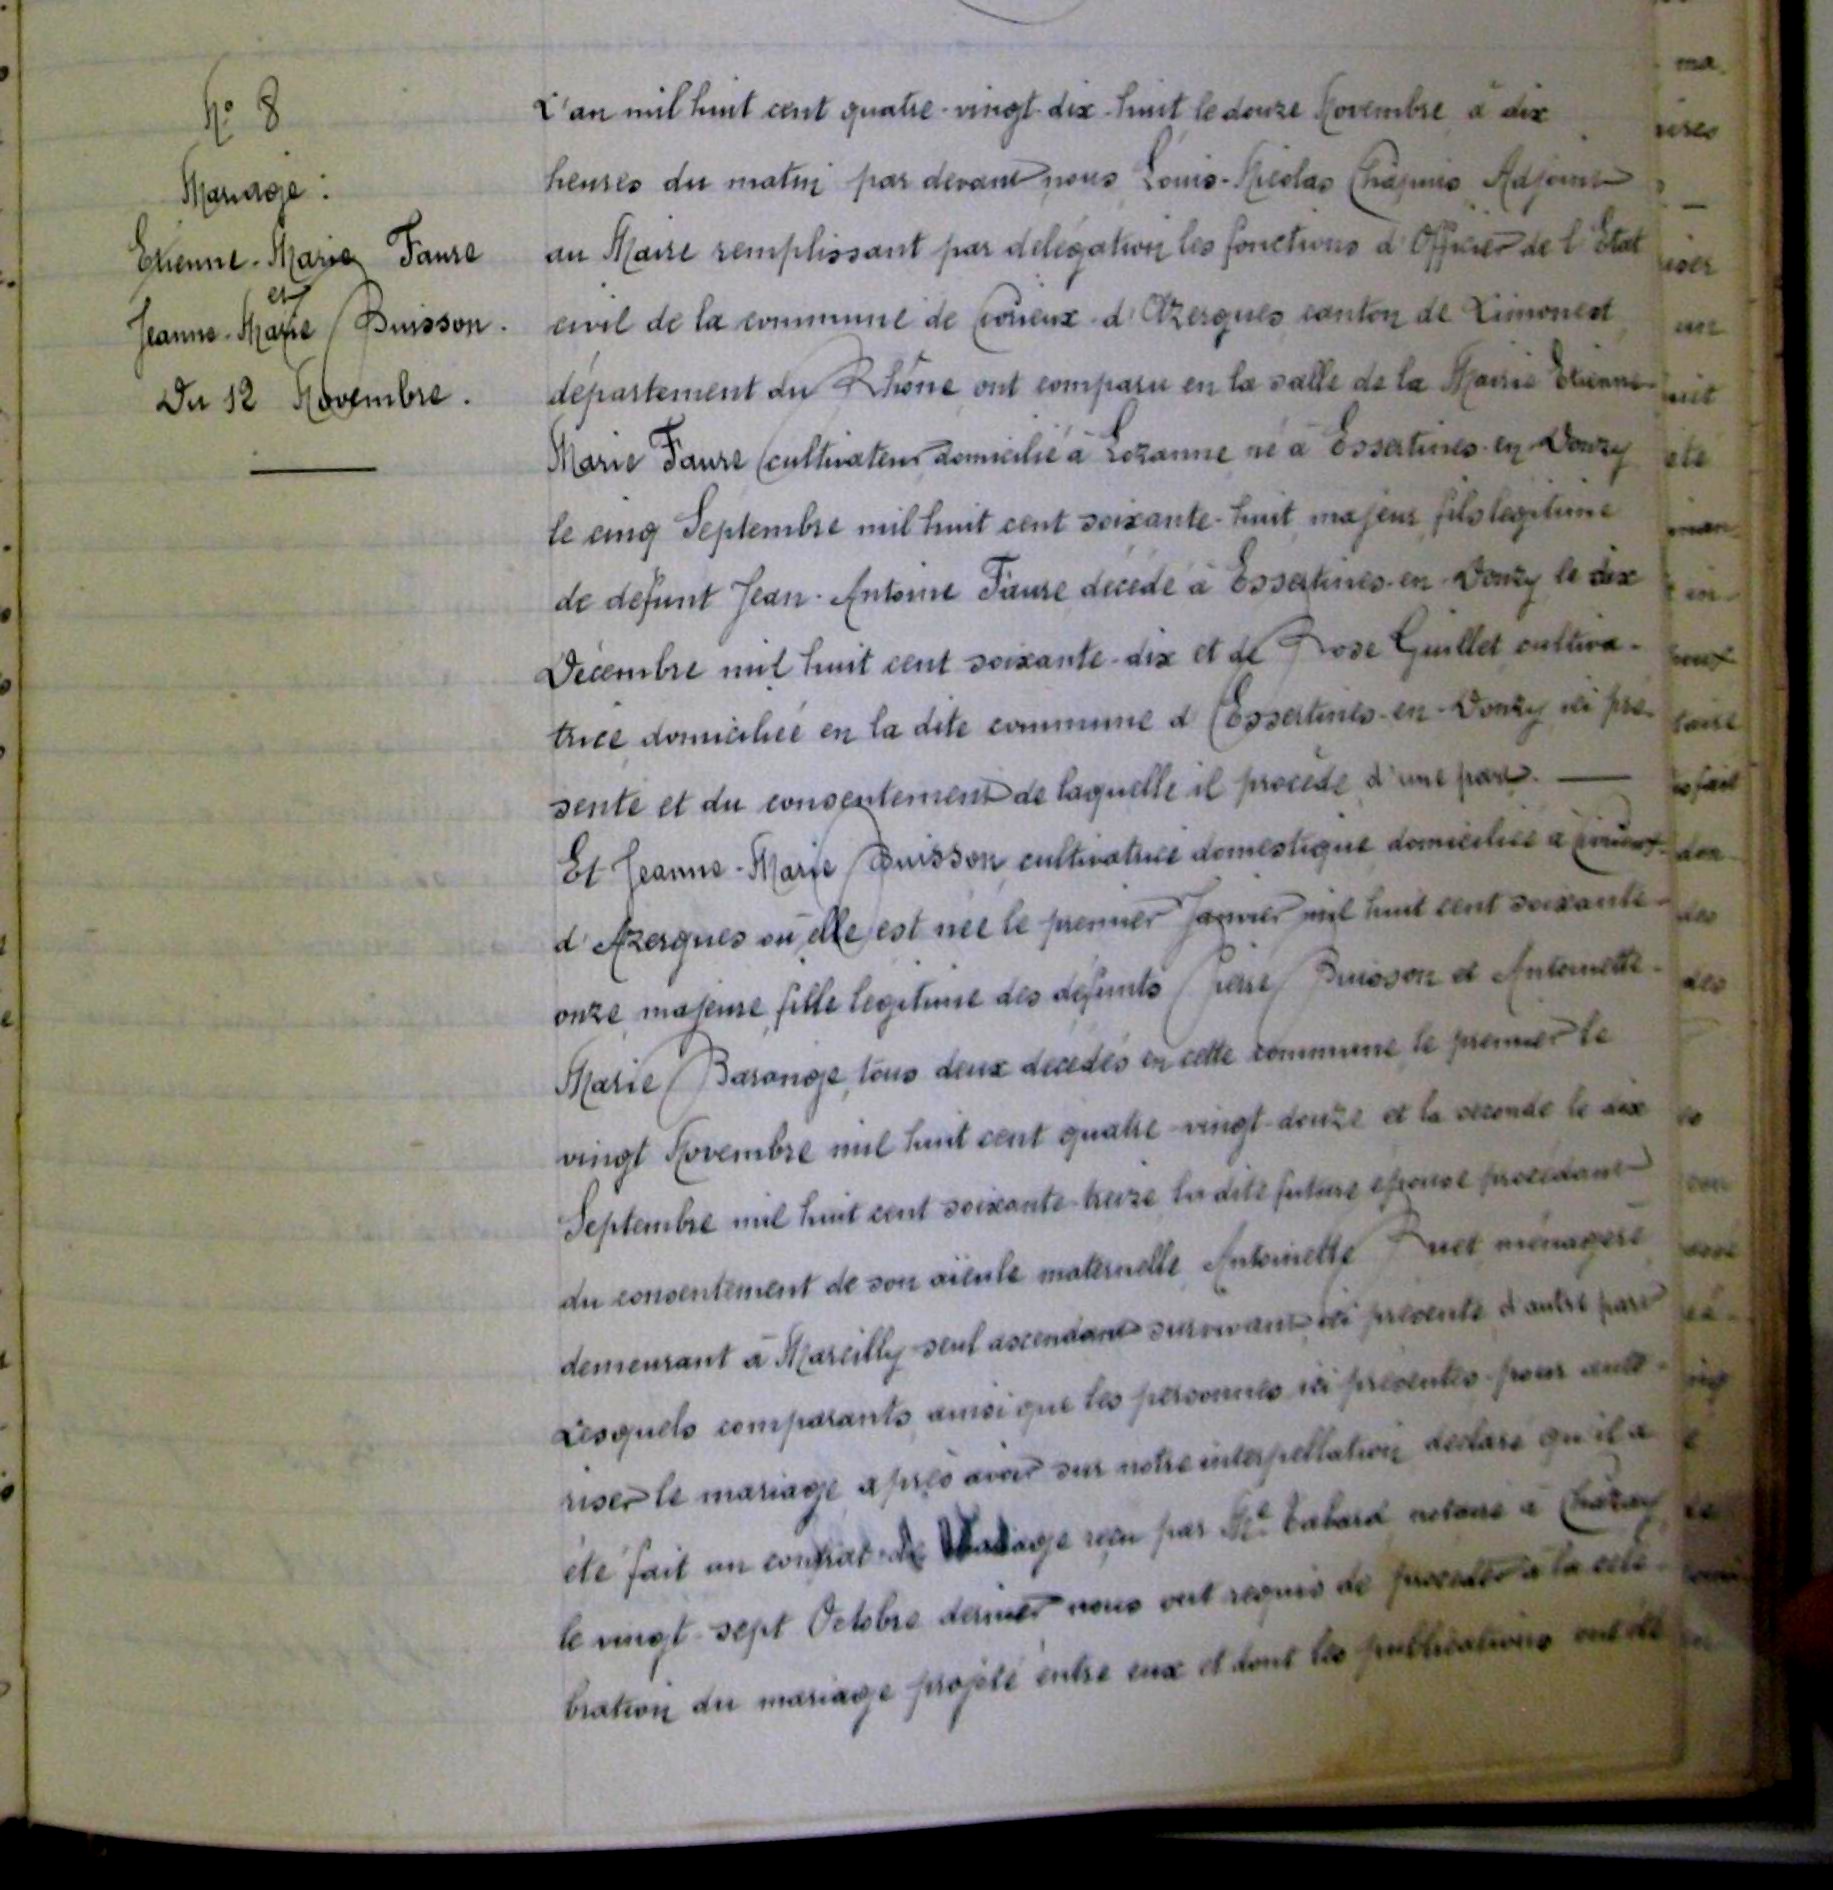 N° 8
Mariage :
Etienne-Marie Faure
et
Jeanne-Marie Buisson.
Du 12 Novembre.
L'an mil huit cent quatre-vingt-dix-huit le douze Novembre à dix
heures du matin par devant nous Louis-Nicolas Chapuis Adjoint
au Maire remplissant par délégation les fonctions d'Officier de l'Etat
civil de la commune de Civrieux-d'Azergues canton de Limonest
département du Rhône ont comparu en la salle de la Mairie Etienne-
Marie Faure cultivateur domicilié à Lozanne né à Essertines-en-Donzy
le cinq Septembre mil huit cent soixante-huit majeur fils légitime
de défunt Jean-Antoine Faure décédé à Essertines-en-Donzy le dix
Décembre mil huit cent soixante-dix et de Rose Guillet cultiva-
trice domiciliée en la dite commune d'Essertines-en-Donzy ici pré-
sente et du consentement de laquelle il procède d'une part.
Et Jeanne-Marie Buisson cultivatrice domestique domiciliée à Civrieux-
d'Azergues où elle est née le premier Janvier mil huit cent soixante-
onze majeure fille légitime des défunts Pierre Buisson et Antoinette-
Marie Barange tous deux décédés en cette commune le premier le
vingt Novembre mil huit cent quatre-vingt-douze et la seconde le dix
Septembre mil huit cent soixante-treize la dite future épouse procédant
du consentement de son aïeule maternelle Antoinette Ruet ménagère
demeurant à Marcilly seul ascendant survivant ici présente d'autre part
Lesquels comparants ainsi que les personnes ici présentes pour auto-
riser le mariage après avoir sur notre interpellation déclaré qu'il a
été fait un contrat de Mariage reçu par Me Tabard notaire à Chazay
le vingt-sept Octobre dernier nous ont requis de procéder à la célé-
bration du mariage projeté entre eux et dont les publications ont été